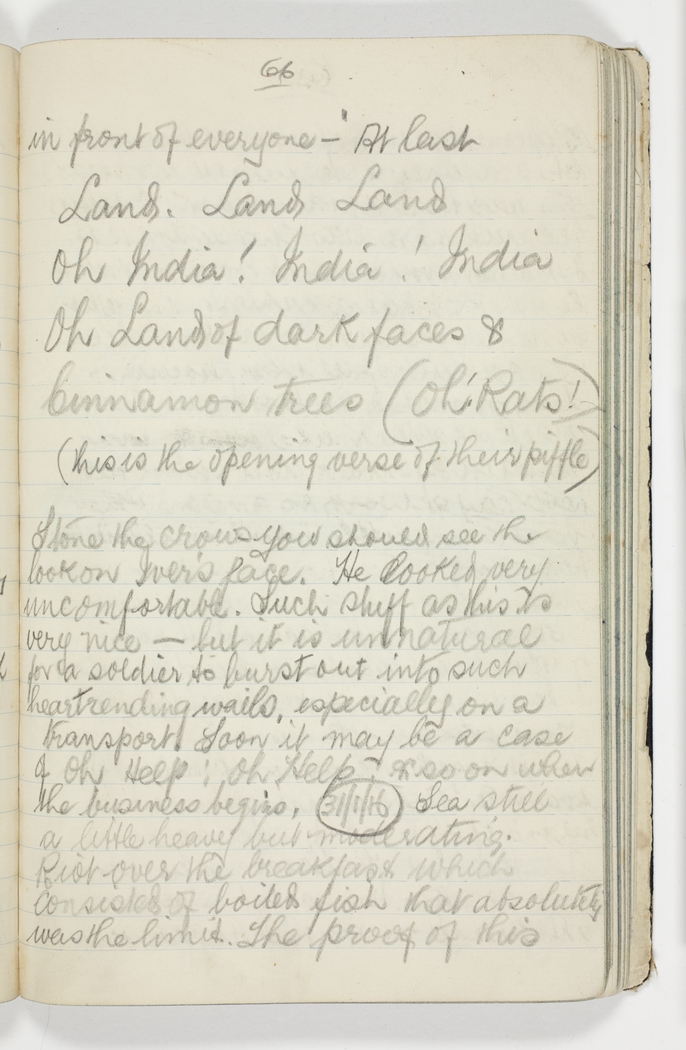 66
in front of everyone - " At last
Land. Land Land
Oh India! India! India
Oh Land of dark faces &
Cinnamon trees (Oh! Rats!)
(this is the opening verse of their piffle)
Stone the crows you should see the
look on Iver's face. He looked very
uncomfortable. Such stuff as this is
very nice — but it is unnatural
for a soldier to burst out into such
heartrending wails, especially on a
transport. Soon it may be a case
of Oh Help! Oh Help! & so on when
the business begins. (31/1/16) Sea still
a little heavy but moderating.
Riot over the breakfast which
consisted of boiled fish that absolutely
was the limit. The proof of this